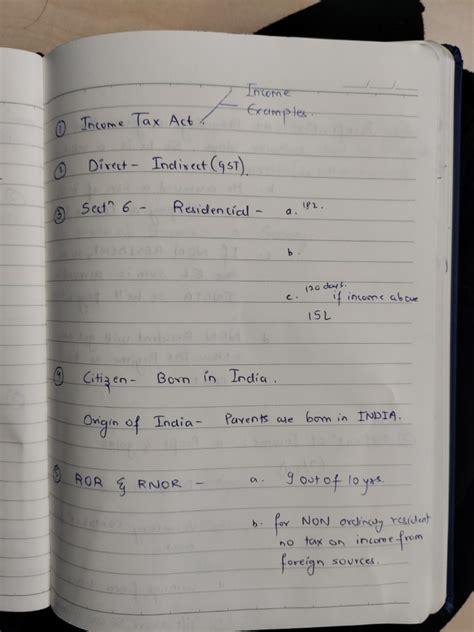 Income
Examples.
① Income Tax Act.
② Direct - Indirect (GST).
③ Sectⁿ 6 - Residencial - a. 182.
b.
c. 120 days. if income above
15L
④ Citizen - Born in India.
Origin of India - Parents are born in INDIA.
⑤ ROR & RNOR - a. 9 out of 10 yrs.
b. for NON ordinary resident
no tax on income from
foreign sources.